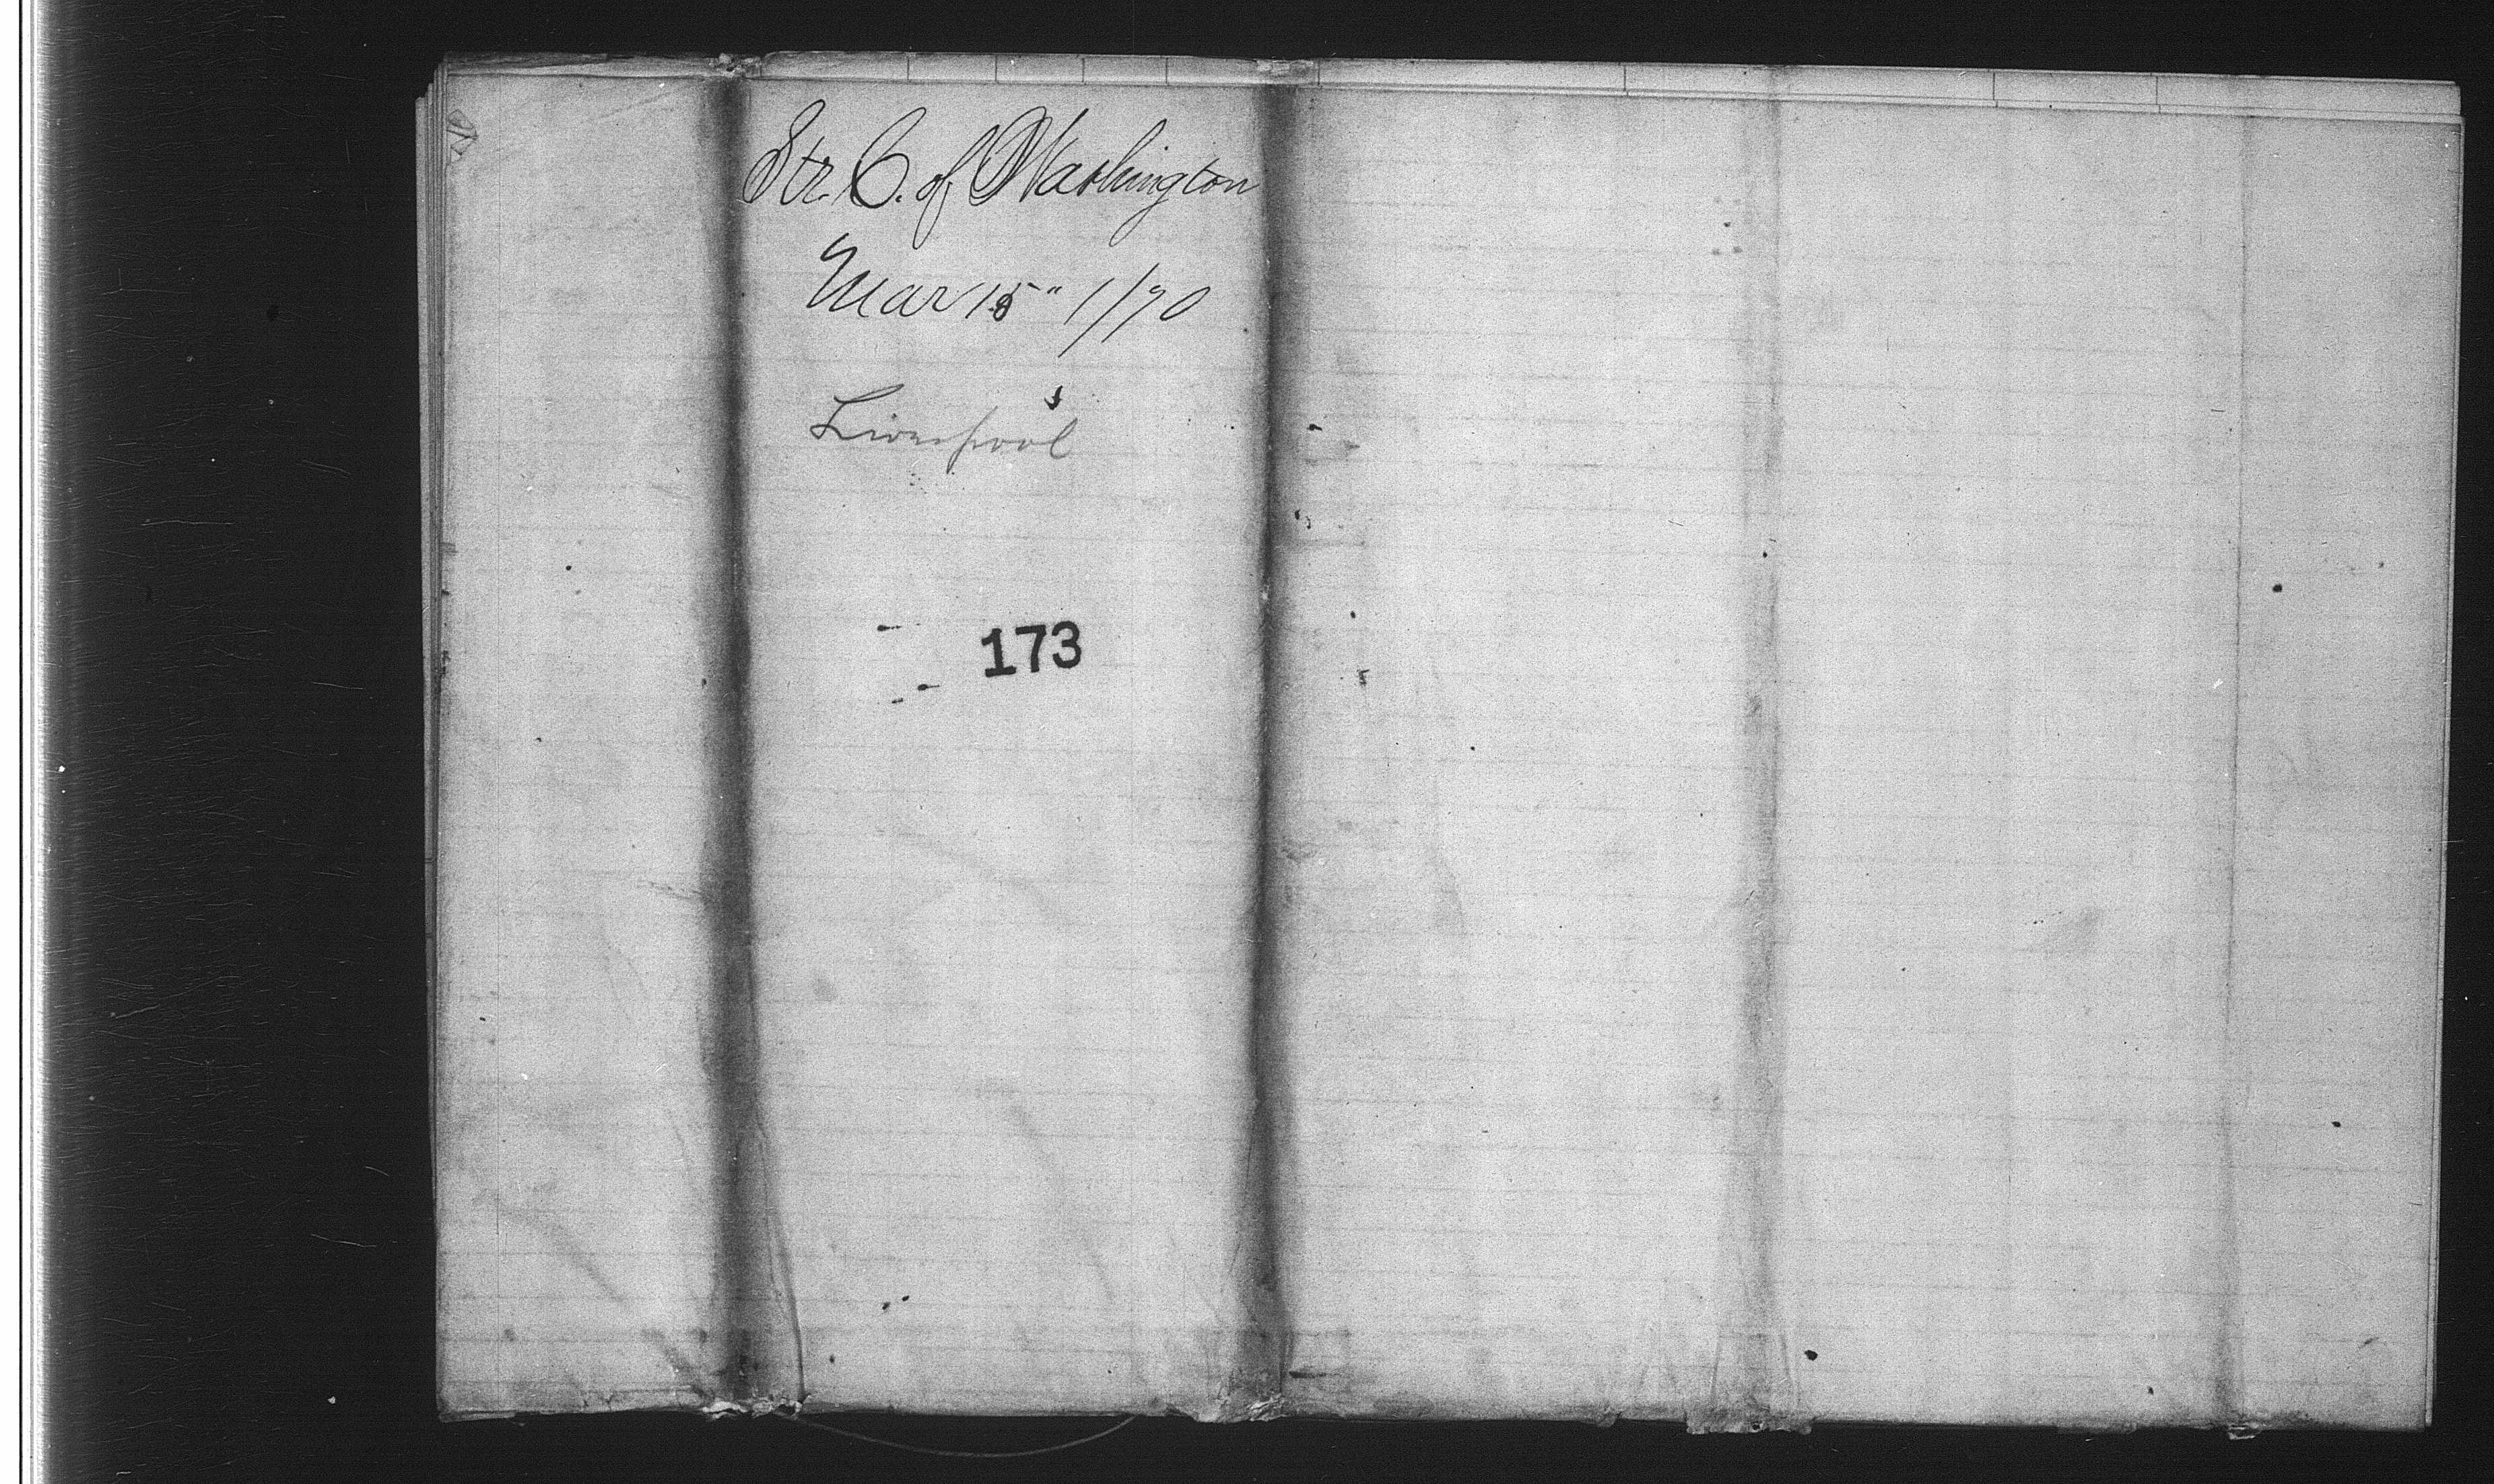 Str. C. of Washington
Mar 15" 1/70
Liverpool
173